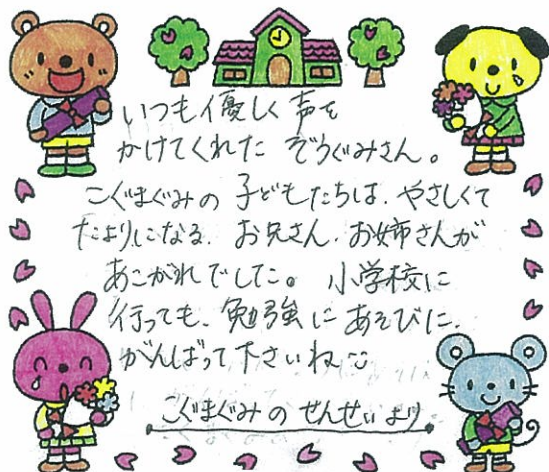 いつも優しく声を
かけてくれた ぞうぐみさん。
こぐまぐみの 子どもたちは、やさしくて
たよりになる、お兄さん、お姉さんが
あこがれでした。 小学校に
行っても、勉強に あそびに、
がんばって下さいね
こぐまぐみの せんせいより